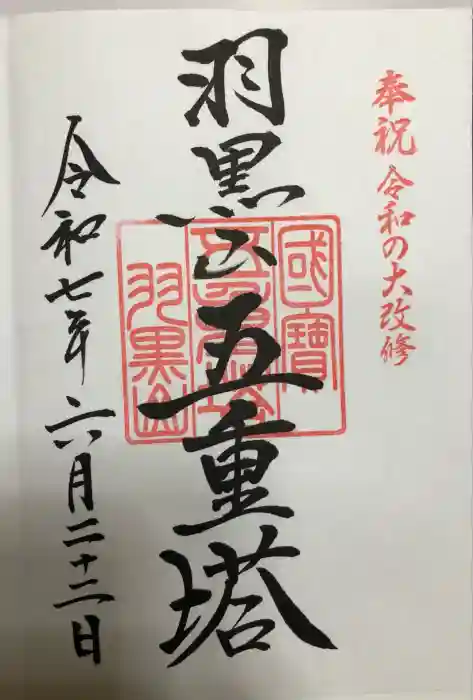 奉祝 令和の大改修
羽黒山五重塔
國寶
五重塔
羽黒山
令和七年六月二十二日